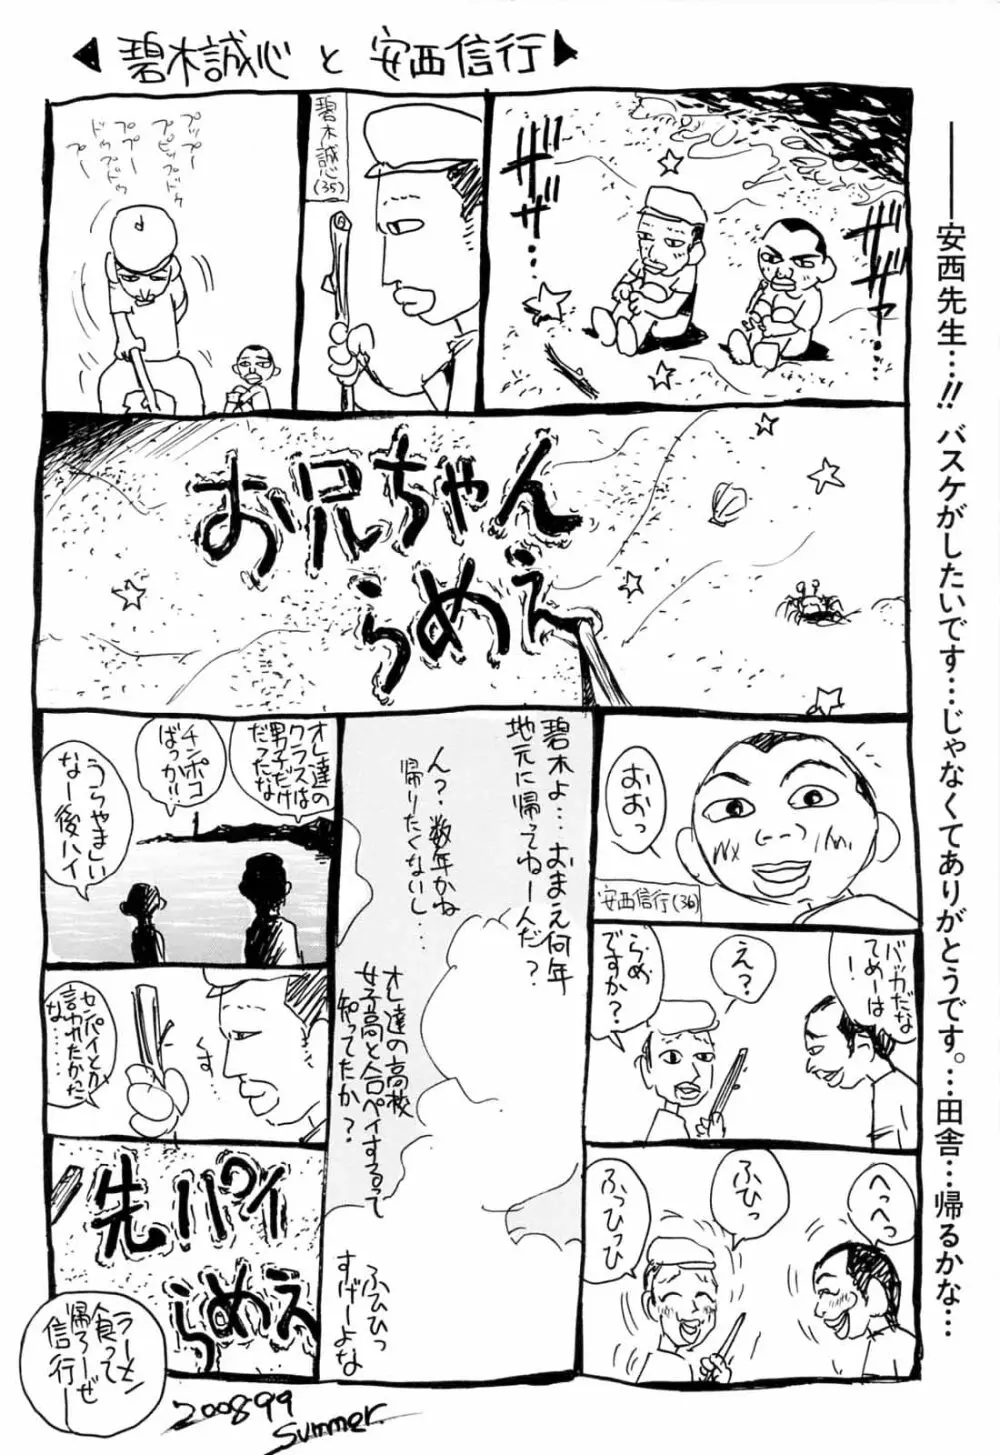 碧木誠心と安西信行
ザザザ…
ザザァ…
碧木誠心(35)
プップー
プピップドゥ
ププー
ドゥップドゥ
プー
お兄ちゃん
らめえ
おおっ
安西信行(36)
バカだな
てめーは
!
え?
らめ
ですか?
へっへっ
ふひっ
ふっひっひ
碧木よ…おまえ何年
地元に帰ってねー人だ?
ん?、数年かね
帰りたくないし…
オレ達の高校
女子高と合ペイするって
知ってたか?
ふひひっ
すげーよな
オレ達の
クラスは
男子だけ
だったな
チンポコ
ばっか!!
うらやましい
なー後ハイ
す
センパイとか
言われたかった
な……
先パイ
らめえ
ラーメン
食って
帰ろーぜ
信行ー
2008 99
Summer.
――安西先生…!!バスケがしたいです…じゃなくてありがとうです。…田舎…帰るかな…